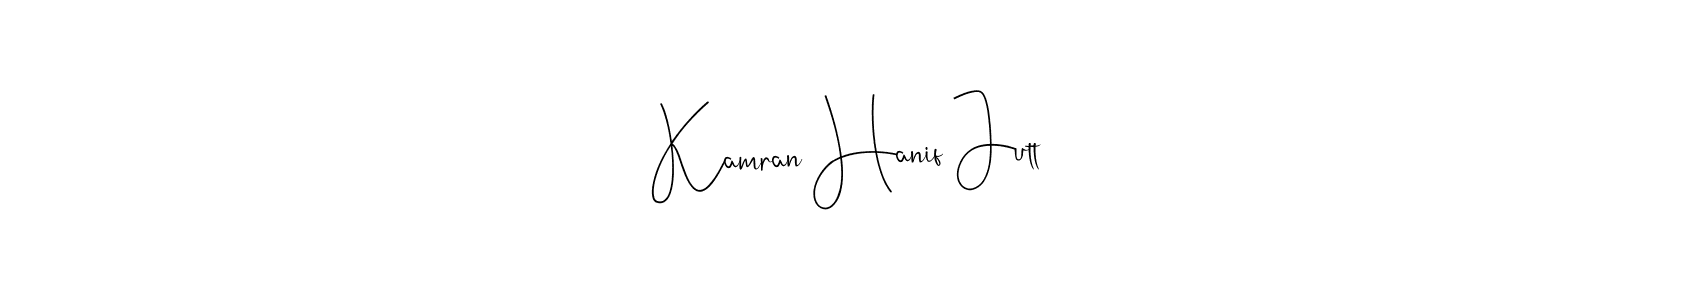 Kamran Hanif Jutt